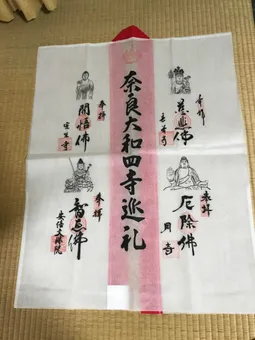 奉拝
慈悲佛
長谷寺
奉拝
厄除佛
岡寺
奈良大和四寺巡礼
奉拝
開悟佛
室生寺
奉拝
智恵佛
安倍文殊院